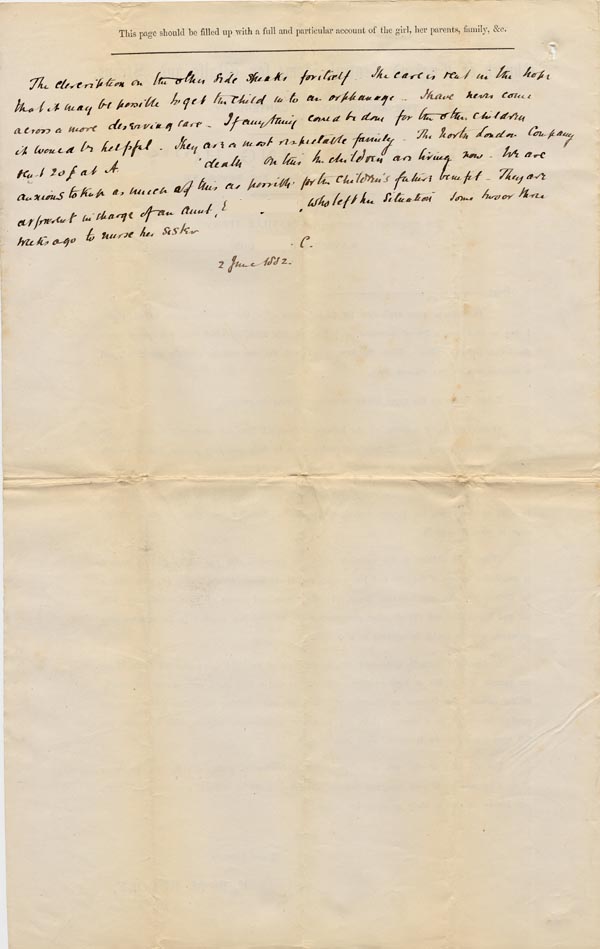 This page should be filled up with a full and particular account of the girl, her parents, family, &c.
The description on the other side speaks for itself. The case is sent in the hope
that it may be possible to get the child in to an orphanage. I have never come
across a more deserving case. If anything could be done for the other children
it would be helpful. They are a most respectable family. The North London Company
sent 20£ at A death On this the children are living now. We are
anxious to keep as much of this as possible for the children's future benefit. They are
at present in charge of an aunt, E who left her situation some two or three
weeks ago to nurse her sister
C.
2 June 1882.